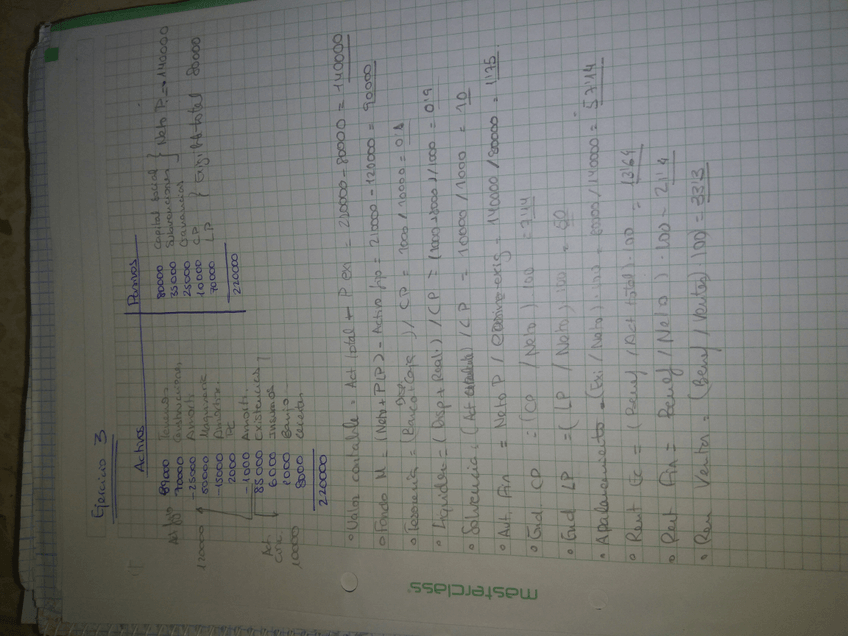 Ejercicio 3
Activos
Pasivos
Act. fijo
120000
89000
70000 Construcciones
-25000 Amort.
50000 Maquinaria
-15000 Amortiz.
2000 PC
-1000 Amorti.
Act. Circ.
100000
85000 Existencias
6000
1000 Banco
8000
220000
80000 Capital social
35000 Subvenciones
25000 Ganancias
Neto P. = 140000
10000 CP
70000 LP
Exigi. total 80000
220000
• Valor contable = Act total - P. ex = 220000 - 80000 = 140000
• Fondo M = (Neto + P(LP) - Activo fijo = 210000 - 120000 = 90000
• Tesorería = (Banco + Caja) / CP = 1000 / 10000 = 0'1
Disp
• Liquidez = (Disp + Real) / CP = (1000+8000) / 1000 = 0'9
• Solvencia = (Act / CP = 10000 / 1000 = 10
• Aut. Fin = Neto P / (Pasivo exig = 140000 / 80000 = 1'75
• End. CP = (CP / Neto) · 100 = 7'14
• End LP = (LP / Neto) · 100 = 50
• Apalancamiento = (Exi / Neto) · 100 = 80000 / 140000 = 57'14
• Rent Ec = (Benef / Act. total) · 100 = 13'64
• Rent Fin = Benef / Neto) · 100 = 21'4
• Ren Ventas = (Benef / Ventas) · 100 = 33'3
masterclass